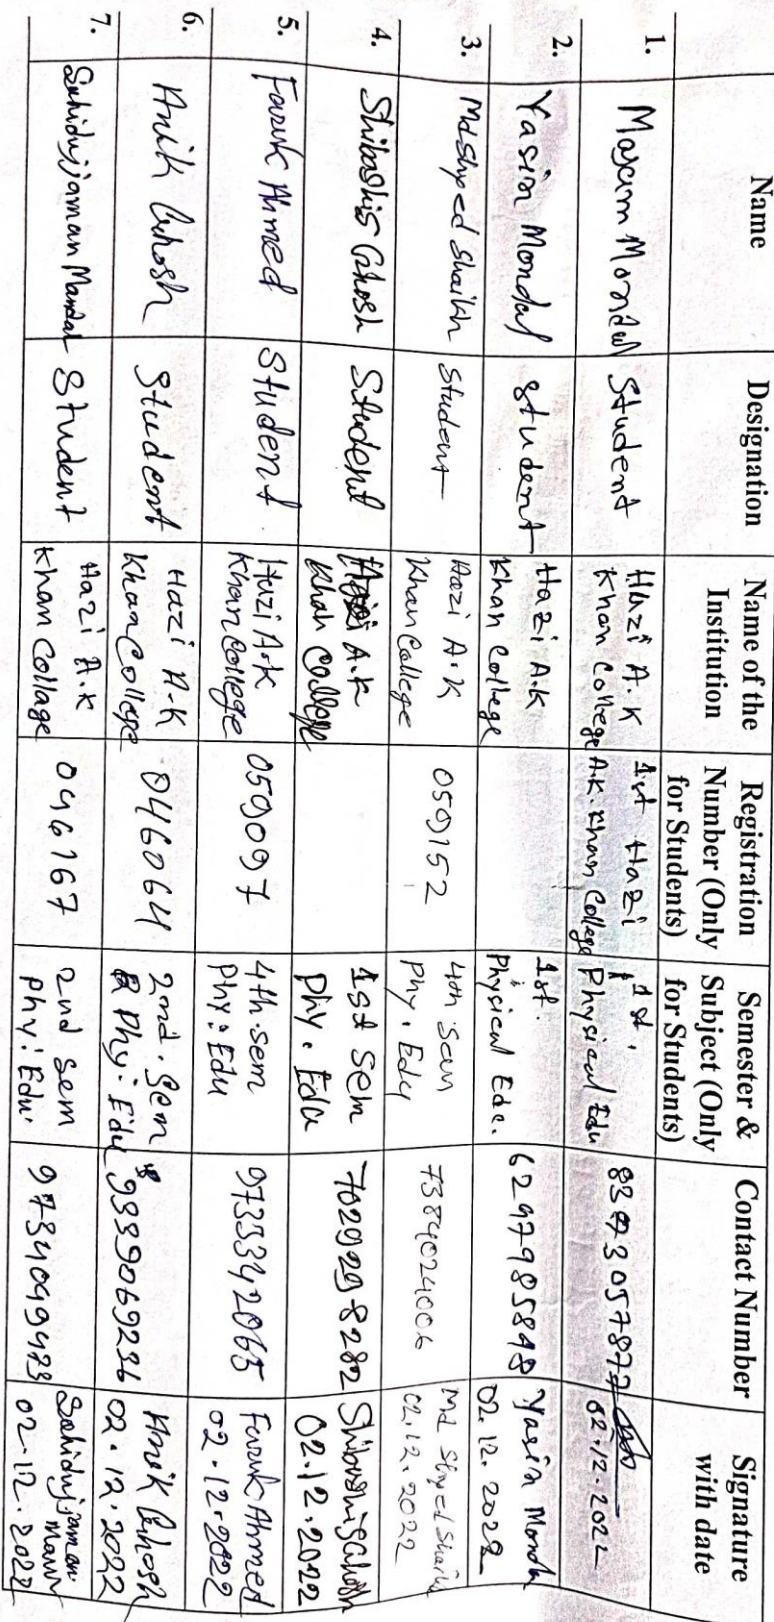 Name Designation Name of the Institution Registration Number (Only for Students) Semester & Subject (Only for Students) Contact Number Signature with date
1. Masum Mondal Student Hazi A.K Khan College 1st Hazi A.K. Khan College 1st. Physical Edu 02.12.2022
2. Yasin Mondal Student Hazi A.K Khan College 1st. Physical Edc. 6297985848 Yasin Mondal 02.12.2022
3. Md Shaikh Student Hazi A.K Khan College 0509152 4th Sem Phy. Edu 7384024006 Md Shaikh 02.12.2022
4. Shibashis Ghosh Student Hazi A.K Khan College 1st Sem Phy. Edu 7029298282 Shibashis Ghosh 02.12.2022
5. Faruk Ahmed Student Hazi A.K Khan College 0509097 4th.sem Phy. Edu 9733342065 Faruk Ahmed 02.12.2022
6. Anik Ghosh Student Hazi A.K Khan College 046064 2nd. Sem Phy. Edu 9339069236 Anik Ghosh 02.12.2022
7. Sahidujjaman Mandal Student Hazi A.K Khan Collage 046167 2nd Sem Phy. Edu. 9734049423 Sahidujjaman 02.12.2022